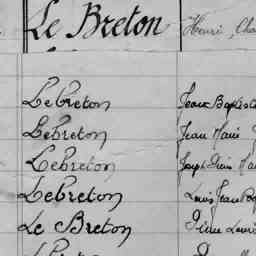 Le Breton Henri, Cha
Lebreton Jean Baptiste
Lebreton Jean Marie
Lebreton Joseph Louis Ma
Lebreton Louis Jean
Le Breton Pierre Louis